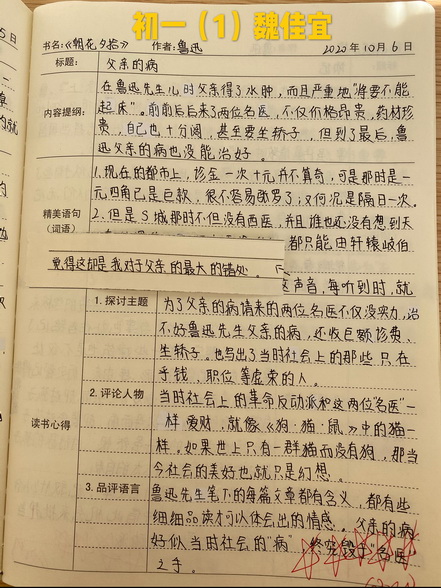 初一（1）魏佳宜
书名：《朝花夕拾》 作者：鲁迅 2020年10月6日
标题： 父亲的病
内容提纲：
在鲁迅先生儿时父亲得了水肿，而且严重地"将要不能
起床"。前前后后来了两位名医，不仅价格昂贵，药材珍
贵，自己也十分阔，甚至要坐轿子，但到了最后，鲁
迅父亲的病也没能治好。
精美语句
（词语）
1.现在的都市上，诊金一次十元并不算奇，可是那时是一
元四角已是巨款，很不容易张罗了，又何况是隔日一次。
2.但是S城那时不但没有西医，并且谁也还没有想到天
都只能由轩辕岐伯
觉得这却是我对于父亲的最大的错处。
这声音，每听到时，就
读书心得
1.探讨主题
为了父亲的病请来的两位名医不仅没实力，治
不好鲁迅先生父亲的病，还收巨额诊费、
坐轿子。也写出了当时社会上的那些只在
乎钱，职位等虚荣的人。
2.评论人物
当时社会上的革命反动派和这两位名医"一
样爱财，就像《狗·猫·鼠》中的猫一
样。如果世上只有一群猫而没有狗，那当
今社会的美好也就只是幻想。
3.品评语言
鲁迅先生笔下的每篇文章都有含义，都有些
细细品读才可以体会出的情感。父亲的病
好似当时社会的"病"，终究毁于"名医"
之手。